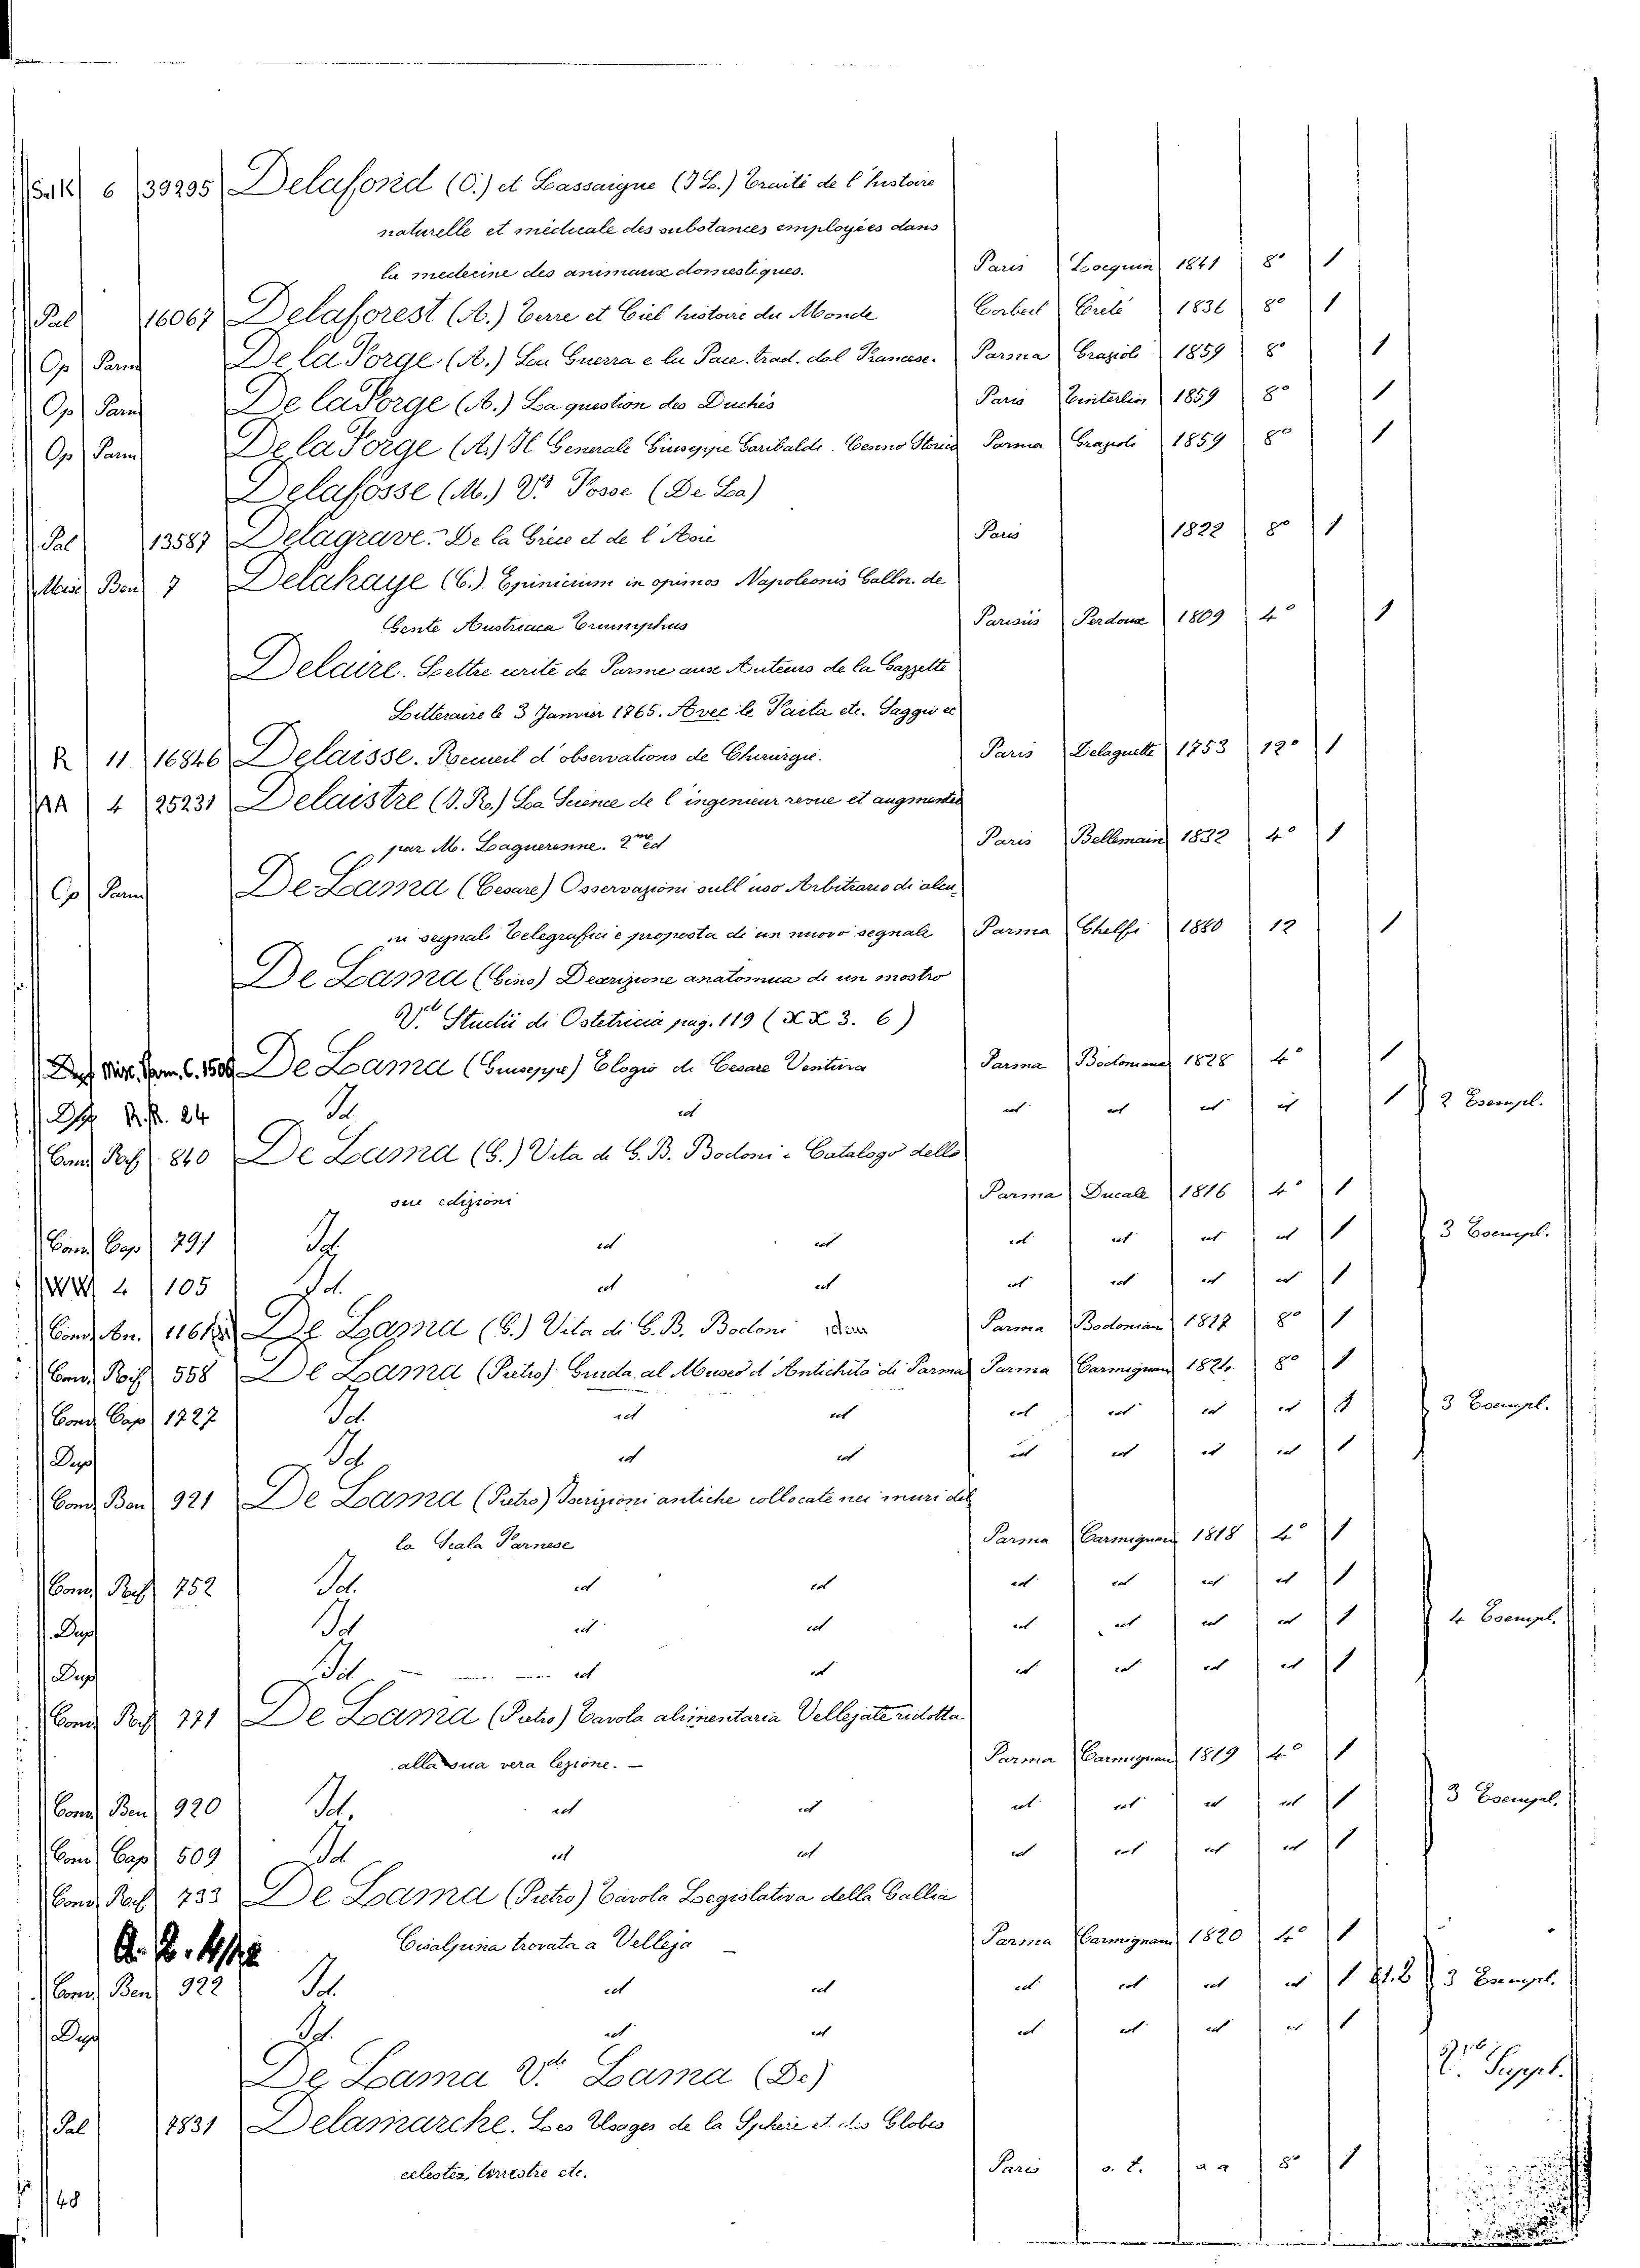 Sal K 6 39295 Delafond (O.) et Lassaigne (J L.) Traité de l'histoire
naturelle et médicale des substances employées dans
la medecine des animaux domestiques. Paris Locquin 1841 8° 1
Pal 16067 Delaforest (A.) Terre et Ciel histoire du Monde Corbeil Creté 1836 8° 1
Op Parm De la Forge (A.) La Guerra e la Pace. trad. dal Francese. Parma Grazioli 1859 8° 1
Op Parm De la Forge (A.) La question des Duchés Paris Tinterlin 1859 8° 1
Op Parm De la Forge (A.) Il Generale Giuseppe Garibaldi. Cenno Storico Parma Grazioli 1859 8° 1
Delafosse (M.) Vi Fosse (De La)
Pal 13587 Delagrave. De la Grèce et de l'Asie Paris 1822 8° 1
Misc Ben 7 Delahaye (C.) Epinicium in opimos Napoleonis Gallor. de
Gente Austriaca Triumphus Parisiis Perdoux 1809 4° 1
Delaire. Lettre écrite de Parme aux Auteurs de la Gazzette
Litteraire le 3 Janvier 1765. Avec le Paita etc. Saggio ec
R 11 16846 Delaisse. Recueil d'observations de Chirurgie. Paris Delaguette 1753 12° 1
4 25231 Delaistre (J. R.) La Science de l'ingenieur revue et augmentée
par M. Laguerenne. 2me ed Paris Bellemain 1832 4° 1
Op Parm De Lama (Cesare) Osservazioni sull'uso Arbitrario di alcu-
ni segnali Telegrafici e proposta di un nuovo segnale Parma Ghelfi 1880 12 1
De Lama (Gino) Descrizione anatomica di un mostro
Vi Studii di Ostetricia pag. 119 (XX 3. 6)
Dup Misc. Parm. C. 1506 De Lama (Giuseppe) Elogio di Cesare Ventura Parma Bodoniana 1828 4° 1
24 Id id id id id id 1 2 Esempl.
Cand Ros 840 De Lama (G.) Vita di G. B. Bodoni e Catalogo delle
sue edizioni Parma Ducale 1816 4° 1
Cand Cap 291 Id. id id id id id id 1 3 Esempl.
4 105 Id. id id id id id id 1
Cand An. De Lama (G.) Vita di G. B. Bodoni idem Parma Bodoniana 1817 8° 1
Cand. Ros 558 De Lama (Pietro) Guida al Museo d'Antichità di Parma Parma Carmignani 1824 8° 1
Cand Cap 1227 Id. id id id id id id 1 3 Esempl.
Dup Id. id id id id id id 1
Cand Ben 921 De Lama (Pietro) Iscrizioni antiche collocate nei muri del
la Scala Farnese Parma Carmignani 1818 4° 1
Cand Ros 752 Id. id id id id id id 1
Dup Id id id id id id id 1 4 Esempl.
Dup Id id id id id id id 1
Cand Ros 771 De Lama (Pietro) Tavola alimentaria Vellejate ridotta
alla sua vera lezione. - Parma Carmignani 1819 4° 1
Cand Ben 920 Id. id id id id id id 1 3 Esempl.
Cand Cap 509 Id id id id id id id 1
Cand Ros 733 De Lama (Pietro) Tavola Legislativa della Gallia
Cisalpina trovata a Velleja - Parma Carmignani 1820 4° 1
Cand Ben 922 Id. id id id id id id 1 3 Esempl.
Dup Id. id id id id id id 1
De Lama Vi Lama (De) Vi Suppl.
Pal 7831 Delamarche. Les Usages de la Sphere et des Globes
celestes, terrestre etc. Paris s. t. a a 8° 1
48